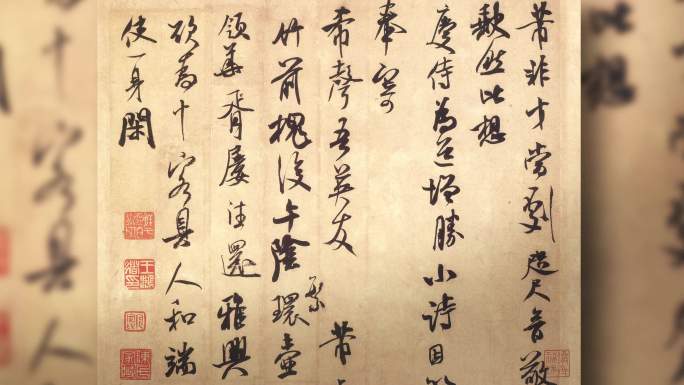 芾非才當劇咫尺音敬
缺然比想
慶侍為道增勝小詩因以
奉寄
希聲吾英友芾上
竹前槐後午陰環壺
繁
領華胥屢往還雅興
欲為十客具人和端
使一身閑